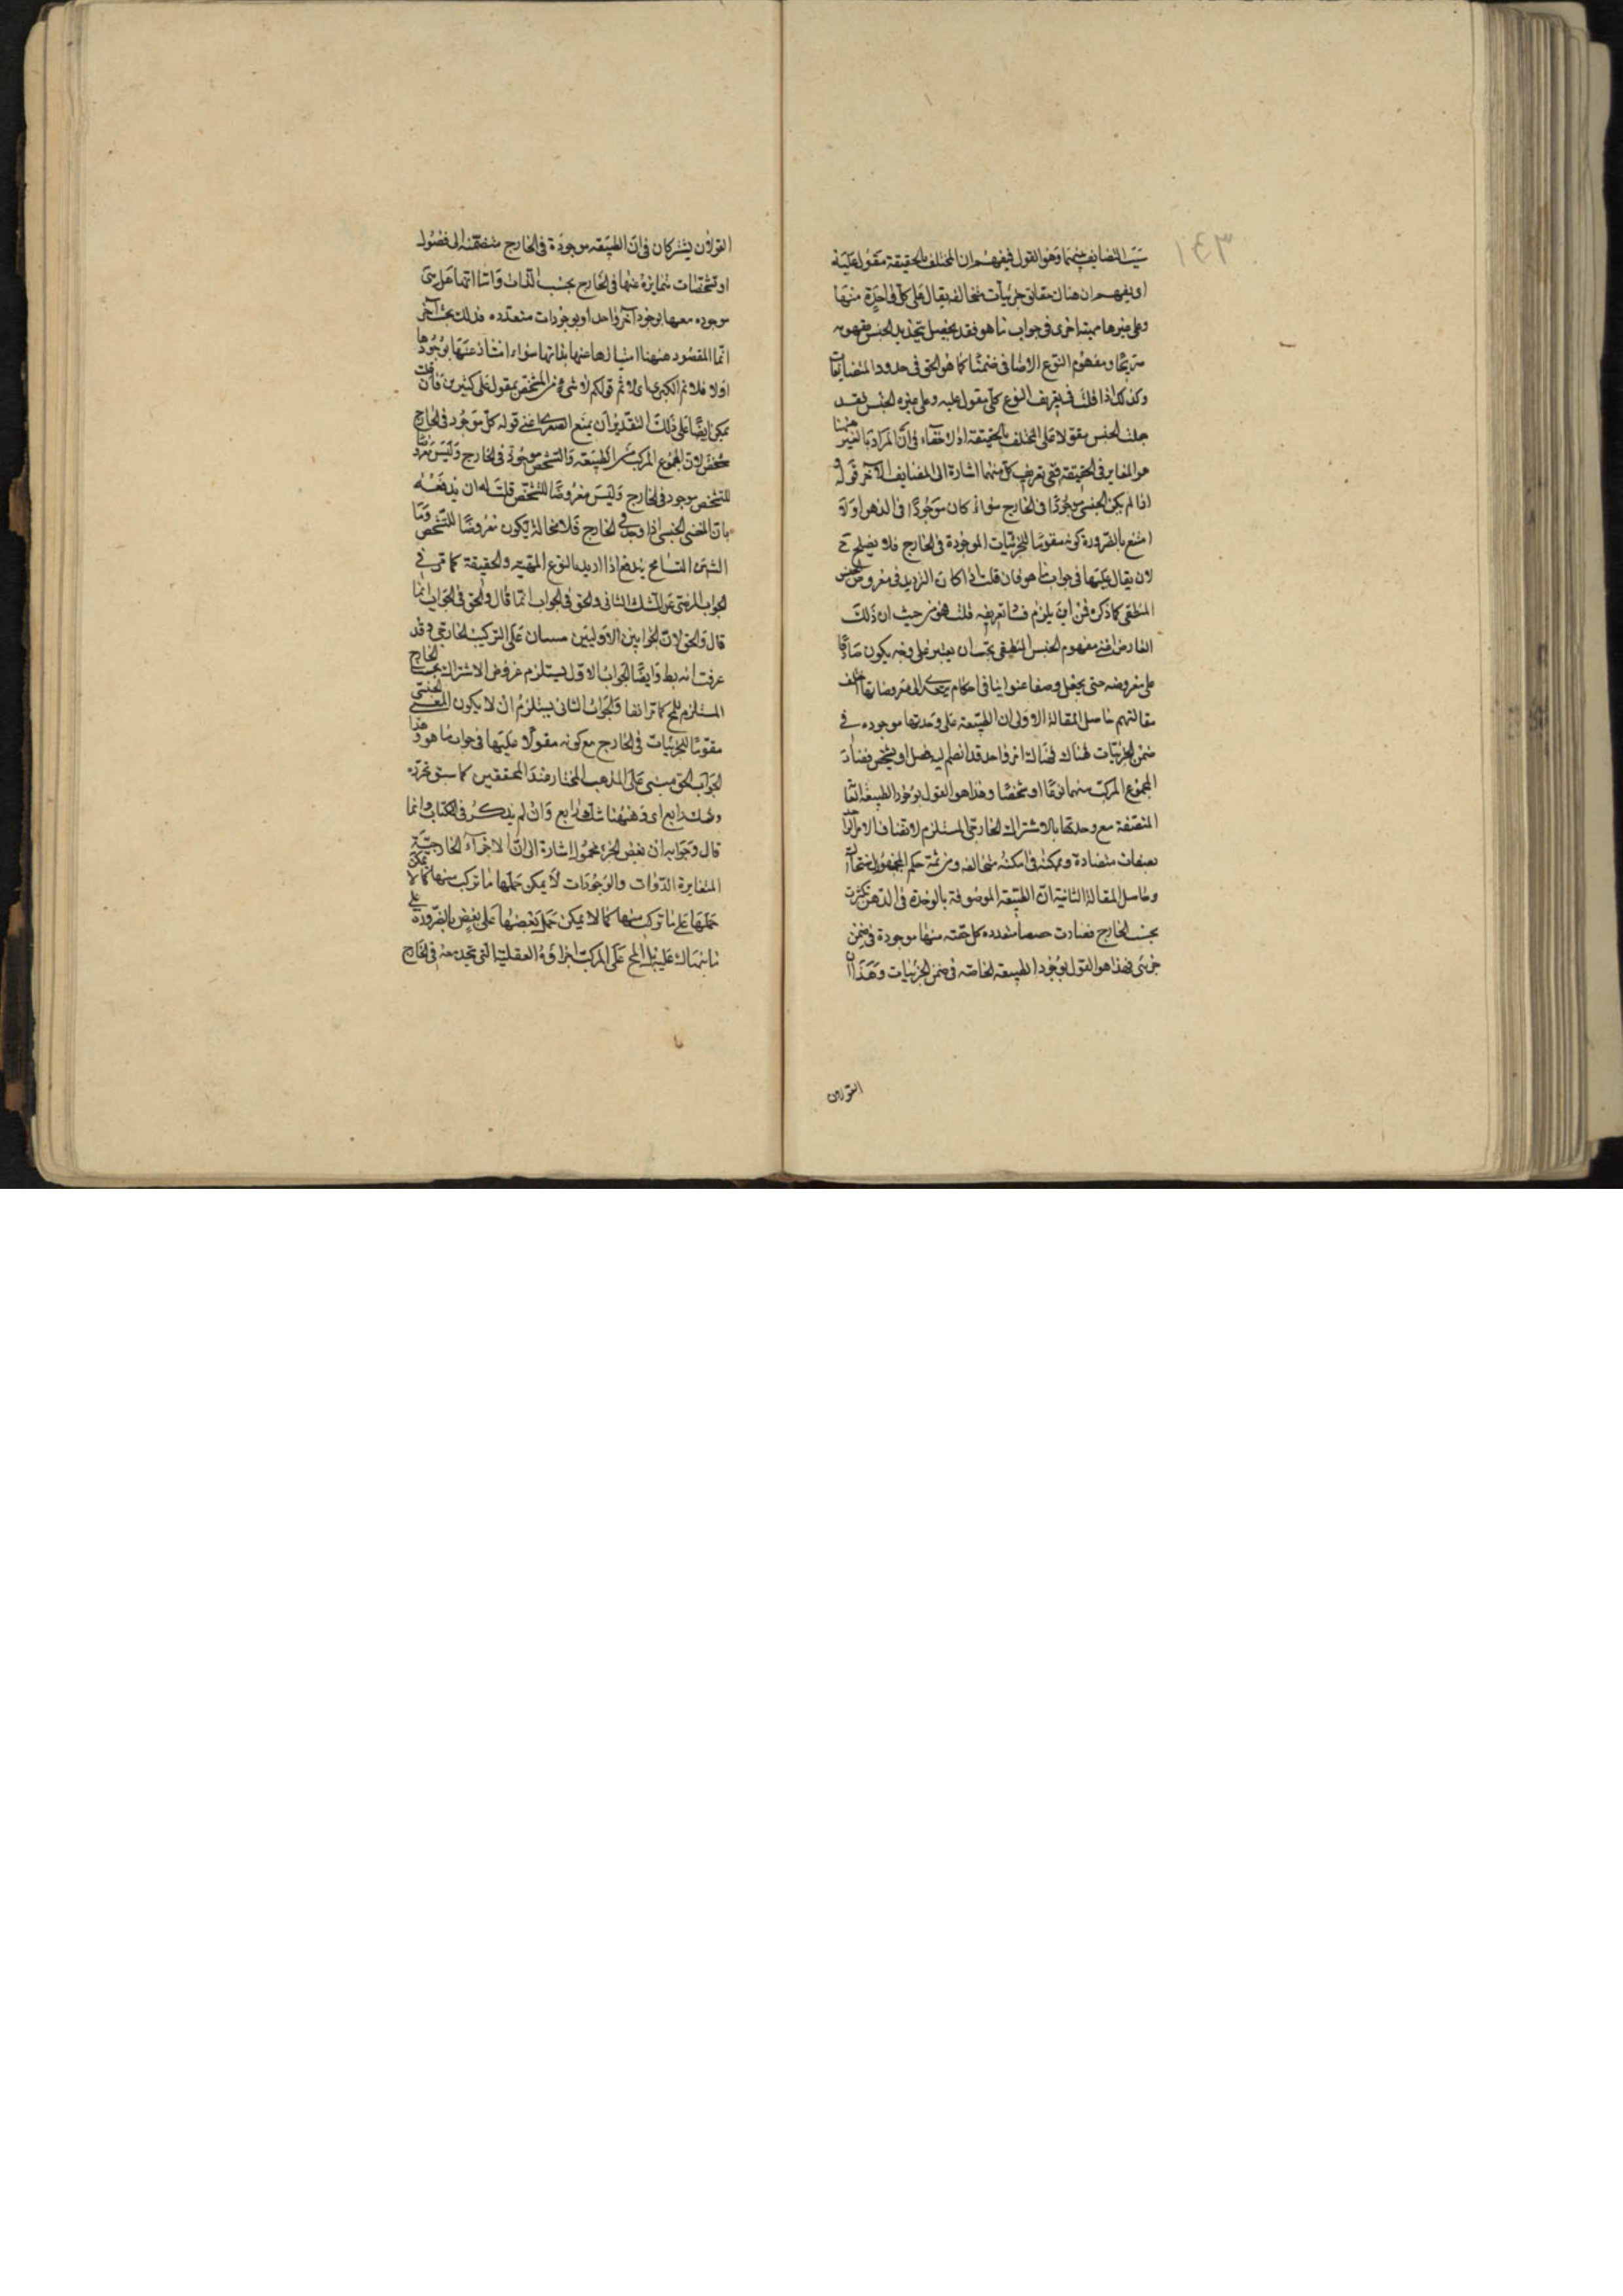 ١٤٣
التضايف بينهما وهو القول فيفهم ان المختلف بالحقيقة مقول عليه
او يفهم ان هناك حقايق جزئيات متخالفة يقال على كل واحدة منها
وعلى غيرها مهية اخرى في جواب ما هو فقد يحصل بتحديد الجنس مفهومه
صريحا ومفهوم النوع الاضافي ضمنا كما هو الحق في حدود المتضايفات
وكذلك اذا قلت في تعريف النوع كلي مقول عليه وعلى غيره الجنس فقد
جعلت الجنس مقولا على المختلف بالحقيقة اذ لا خفاء في ان المراد بالغير ههنا
هو المغاير في الحقيقة ففي تعريف كل منهما اشارة الى المضايف الآخر قوله
اذا لم يكن الجنس موجودا في الخارج سواء كان موجودا في الذهن او لا
امتنع بالضرورة كونه مقوما للجزئيات الموجودة في الخارج فلا يصلح ح
لان يقال عليها في جواب ما هو فان قلت اذا كان الترديد في معروض الجنس
المنطقي كما ذكره فمن اين يلزم فساد تعريفه قلت هو من حيث ان ذلك
العارض اعني مفهوم الجنس المنطقي يجب ان يعتبر على وجه يكون صادقا
على معروضه حتى يجعل وصفا عنوانيا في احكام
مقالتهم حاصل المقالة الاولى ان الطبيعة على وحدتها موجودة في
ضمن الجزئيات فهناك امر واحد قد انضم اليه فصل او تشخص فصار
المجموع المركب منهما نوعا او شخصا وهذا هو القول بوجود الطبيعة
المتصفة مع وحدتها بالاشتراك الخارجي المستلزم لاتصاف الامر الواحد
بصفات متضادة وتمكنه في امكنة متخالفة ومن ثمة حكم الجمهور
وحاصل المقالة الثانية ان الطبيعة الموصوفة بالوحدة في الذهن تكثرت
بحسب الخارج فصارت حصصا متعددة كل حصة منها موجودة في ضمن
جزئي فهذا هو القول بوجود الطبيعة الخاصة في ضمن الجزئيات وهذان
القولان
القولان يشتركان في ان الطبيعة موجودة في الخارج منضمة الى فصول
او تشخصات متمايزة عنها في الخارج بحسب الذات واما انها هل هي
موجودة معها بوجود آخر واحد او بوجودات متعددة فذلك بحث آخر
انما المقصود ههنا امتيازها عنها بذاتها سواء امتاز عنها بوجودها
اولا فلا تم الكبرى اي لا تم قولكم لا شيء من المشخص بمقول على كثيرين فان قلت
يمكن ايضا على ذلك التقدير ان يمنع الصغرى اعني قوله كل موجود في الخارج
مشخص لان المجموع المركب من الطبيعة والتشخص موجود في الخارج وليس معروضا
للتشخص موجود في الخارج وليس معروضا للتشخص قلت له ان يدفعه
بان المعنى الجنسي اذا وجد في الخارج فلا محالة يكون معروضا للتشخص وما
التسامح يندفع اذا اريد بالنوع المهية والحقيقة كما مر في
الجواب المرضي عن الشك الثاني والحق في الجواب انما قال والحق في الجواب
قال والحق لان الجوابين الاوليين مبنيان على التركيب الخارجي وقد
عرفت انه بط وايضا الجواب الاول يستلزم عروض الاشتراك بحسب الخارج
المستلزم للمح كما مر انفا والجواب الثاني يستلزم ان لا يكون المعنى الجنسي
مقوما للجزئيات في الخارج مع كونه مقولا عليها في جواب ما هو وهذا
الجواب الحق مبني على المذهب المختار عند المحققين كما سبق تحريره
وشك رابع اي وههنا شك رابع وان لم يذكر في الكتاب وانما
قال وجوابه ان بعض الجزء محمول اشارة الى ان الاجزاء الخارجية
المتغايرة الذوات والوجودات لا يمكن حملها ما تركب منها كما لا يمكن
حملها على ما تركب منها كما لا يمكن حمل بعضها على بعض بالضرورة
على المركب اجزاؤه العقلية التي تتحد معه في الخارج